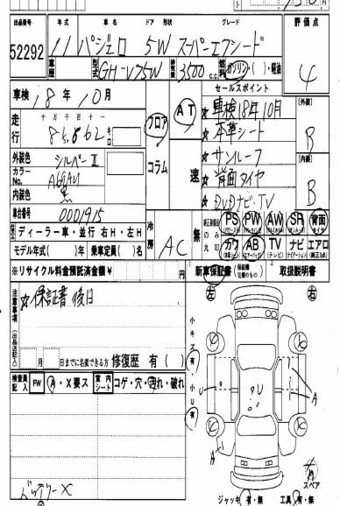 出品番号 年式 車名 ドア 形状 グレード 評価点
52292 11 パジェロ 5W スーパーエクシード 4
車歴 型式 GH-V75W 排気量 3500cc 燃料 ガソリン・( )・軽油
車検 18年10月 セールスポイント
走行 85,862 キロ フロア コラム AT 速
☆車検18年10月
☆本革シート
☆サンルーフ
☆背面タイヤ
☆DVDナビ・TV
[外装] B
[内装] B
外装色 シルバーⅡ
カラーNo.
内装色 黒
車台番号 0001915
ディーラー車・並行 右H・左H
モデル年式( )年 乗車定員( )名
冷房 AC
PS PW AW SR 背面タイヤ
カワ AB TV ナビ エアロ
※リサイクル料金預託済金額 ¥
新車保証書 取扱説明書
注意事項(出品店記入)
☆保証書後日
月 日までに名変できる方 修復歴 有( )無
検査員記入 FW A・X要ス 室内シート コゲ・穴・汚れ・破れ
バッテリーX
左 右
小キズ有
小U有
U U A A
スペア
ジャッキ 有・無 工具 有・無